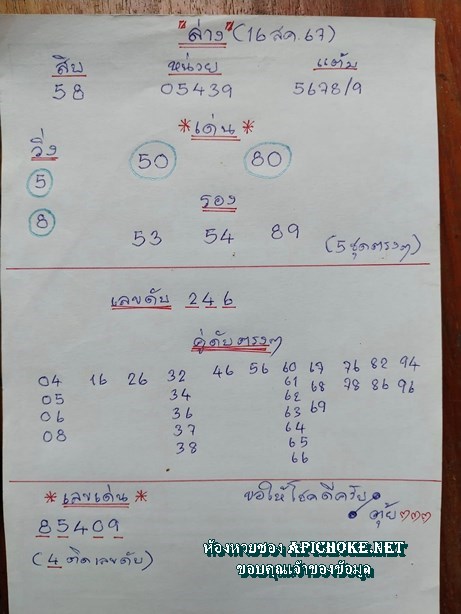 "ล่าง" (16 สค. 67)
สิบ หน่วย แต้ม
58 05439 5678/9
*เด่น*
วิ่ง
50 80
5
รอง
8
53 54 89 (5ชุดตรงๆ)
เลขดับ 246
คู่ดับตรงๆ
04 16 26 32 46 56 60 67 76 82 94
05 34 61 68 78 86 96
06 36 62 69
08 37 63
38 64
65
66
*เลขเด่น* ขอให้โชคดีครับ
85409
(4 ติดเลขดับ)
ห้องหวยซอง APICHOKE.NET
ขอบคุณเจ้าของข้อมูล